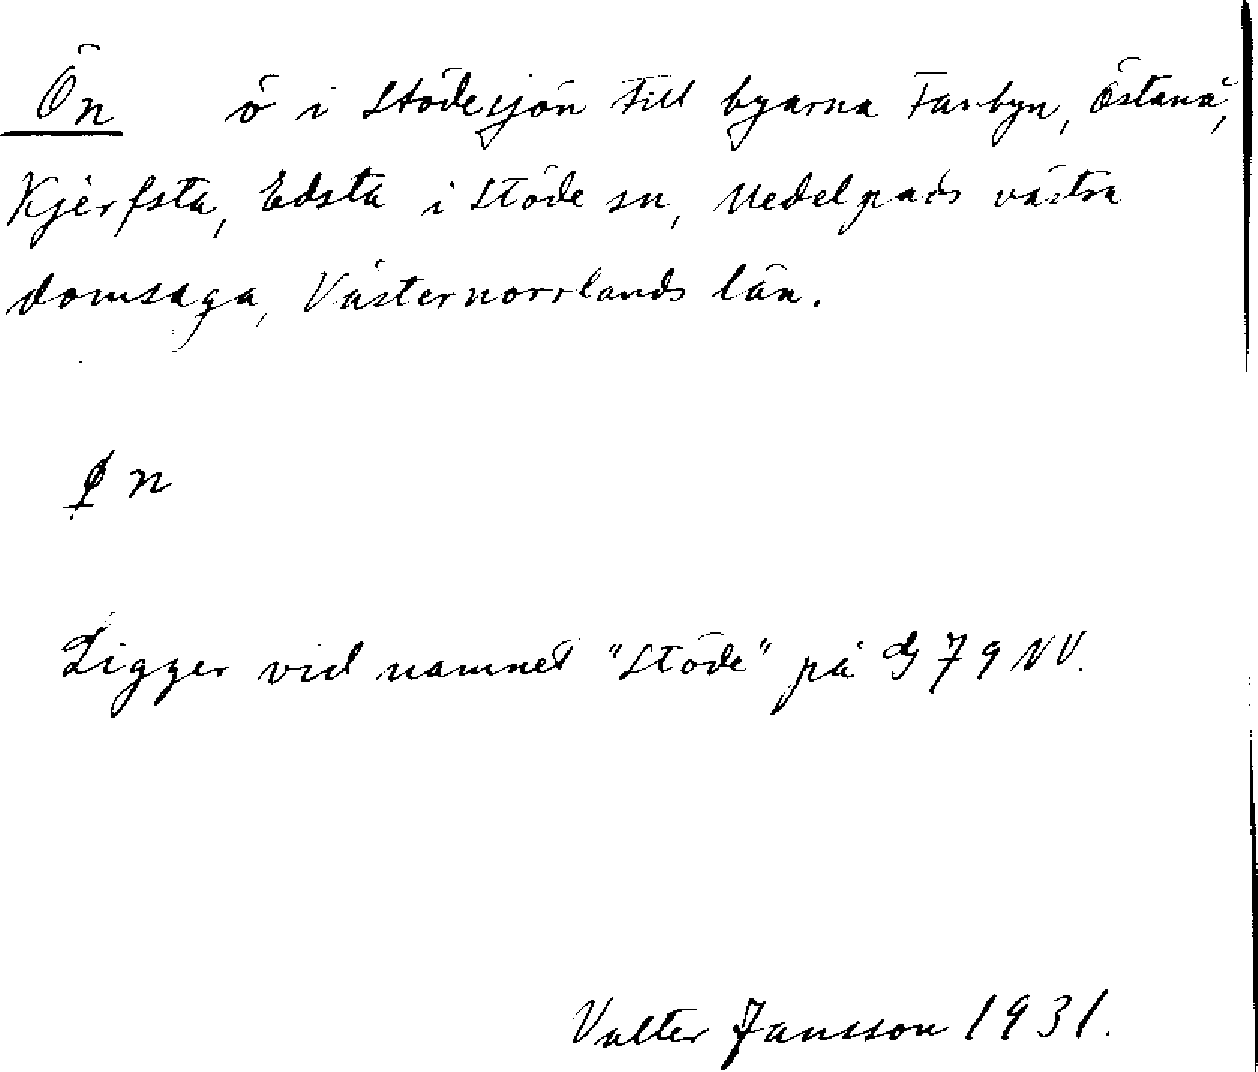 Ön ö i Stödesjön till byarna Fanbyn, Östanå,
Kjerfsta, Edsta i Stöde sn, Medelpads västra
domsaga, Västernorrlands län.
n
Ligger vid namnet "Stöde" på G 79 NV.
Valter Jansson 1931.